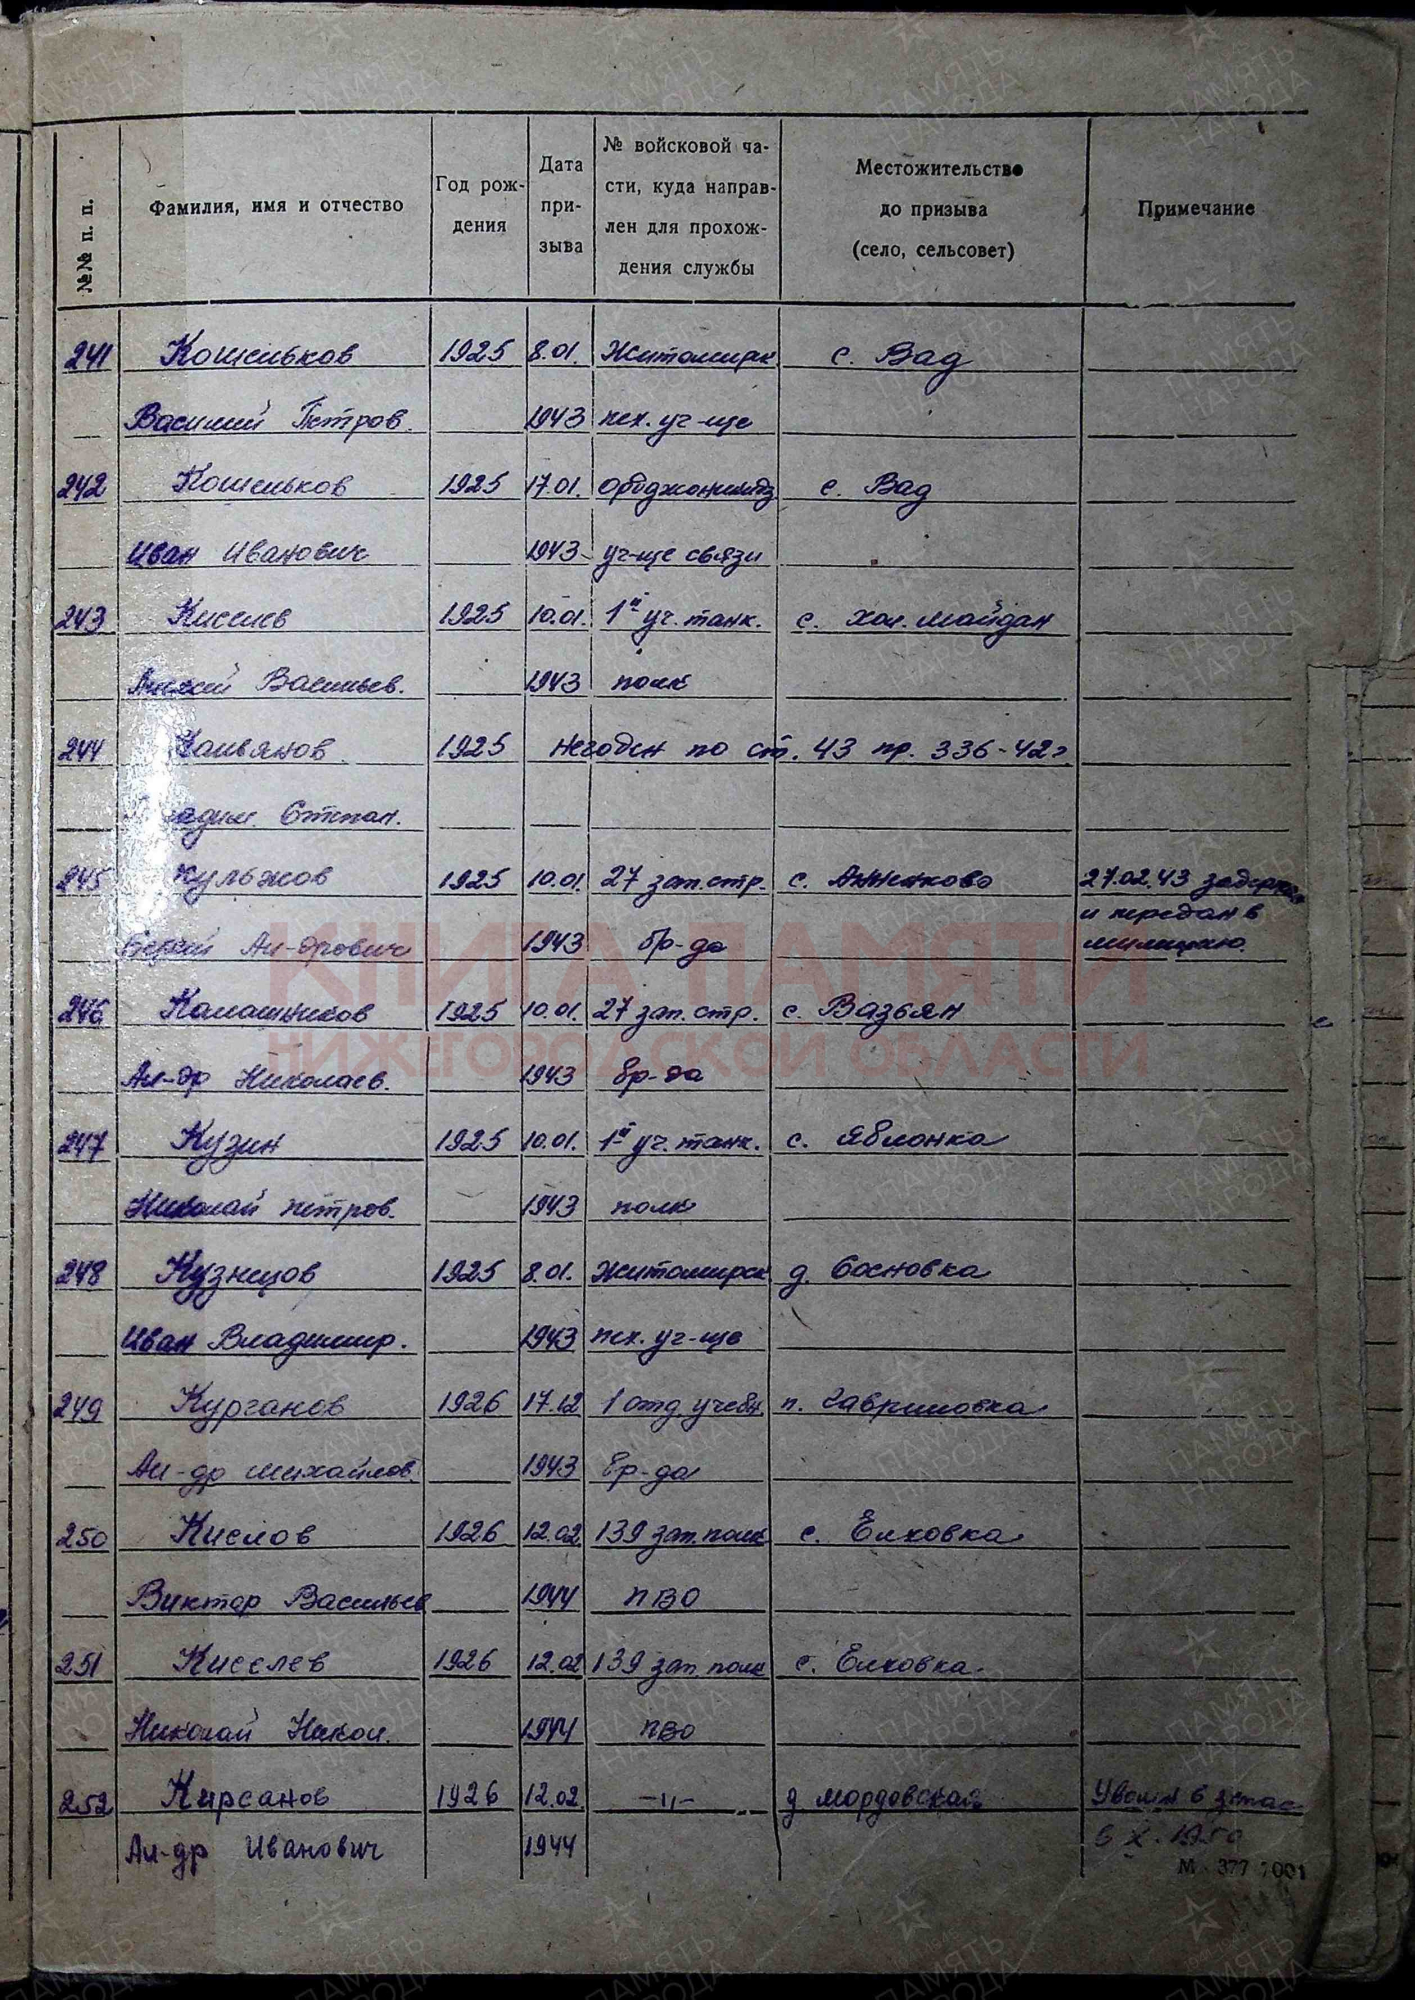 №№ п. п.
Фамилия, имя и отчество
Год рож-
дения
Дата
при-
зыва
№ войсковой ча-
сти, куда направ-
лен для прохож-
дения службы
Местожительство
до призыва
(село, сельсовет)
Примечание
241 Кошельков 1925 8.01. Житомирск. с. Вад
Василий Петров. 1943 пех. уч-ще
242 Кошельков 1925 17.01. Орджоникидз с. Вад
Иван Иванович 1943 уч-ще связи
243 Киселев 1925 10.01. 1й уч. танк. с. Хол. Майдан
Алексей Васильев. 1943 полк
244 1925 Негоден по ст. 43 пр. 336-42г
Степан.
245 Кульжов 1925 10.01. 27 зап. стр. с. Анненково 27.02.43 задержан
и передан в
Ал-дрович 1943 бр-да милицию.
246 Калашников 1925 10.01. 27 зап. стр. с. Вазьян
Ал-др Николаев. 1943 бр-да
247 Кузин 1925 10.01. 1й уч. танк. с. Яблонка
Николай Петров. 1943 полк
248 Кузнецов 1925 8.01. Житомирск д. Сосновка
Иван Владимир. 1943 пех. уч-ще
249 Курганов 1926 17.12 1 отд. учебн. п. Гавриловка
Ал-др Михайлов. 1943 бр-да
250 Кислов 1926 12.02 139 зап. полк с. Елховка
Виктор Васильев 1944 ПВО
251 Киселев 1926 12.02 139 зап. полк с. Елховка.
Николай Никол. 1944 ПВО
252 Кирсанов 1926 12.02 -"- д Мордовская Уволен в запас
Ал-др Иванович 1944 в X. 1950
М 377 7001
КНИГА ПАМЯТИ
НИЖЕГОРОДСКОЙ ОБЛАСТИ
ПАМЯТЬ
НАРОДА